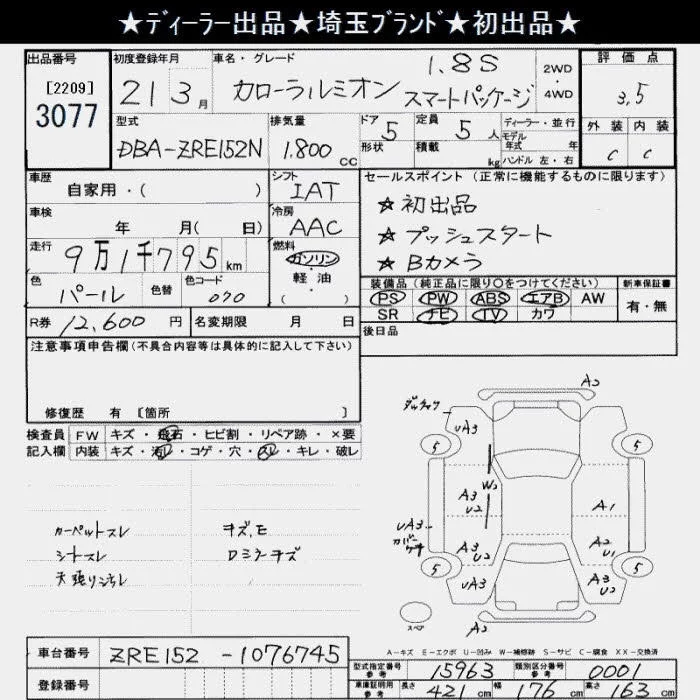 ★ディーラー出品★埼玉ブランド★初出品★
出品番号 初度登録年月 車名・グレード 評価点
[2209] 3077
21 3月 カローラルミオン 1.8S スマートパッケージ 2WD・4WD 3.5
型式 排気量 ドア 5 定員 5人 ディーラー・並行 外装 内装
DBA-ZRE152N 1.800cc 形状 積載 kg モデル年式 年 C C
ハンドル 左・右
車歴 自家用・( ) シフト IAT セールスポイント (正常に機能するものに限ります)
車検 年 月( 日) 冷房 AAC ★初出品
走行 9万1千795km 燃料 ガソリン ★プッシュスタート
軽油 ( ) ★Bカメラ
色 パール 色替 色コード 070 装備品(純正品に限り〇をつけてください) 新車保証書
PS PW ABS エアB AW 有・無
R券 12,600円 名変期限 月 日 SR ナビ TV カワ
注意事項申告欄(不具合内容等は具体的に記入して下さい) 後日品
修復歴 有 [箇所 ]
検査員 FW キズ・飛石・ヒビ割・リペア跡・×要
記入欄 内装 キズ・汚れ・コゲ・穴・スレ・キレ・破レ
カーペットスレ キズ,E
シートスレ Dミラーキズ
天張り汚れ
A2
UA3
5 5
W2
A3 U2 A1
UA3 カバーケキ
A3 U2 A2 U1
5 5
UA3 A3 U2
スペア A2
A-キズ E-エクボ U-凹み W-補修跡 S-サビ C-腐食 XX-交換済
車台番号 ZRE152 -1076745
型式指定番号 参考 15963 類別区分番号 参考 0001
登録番号 車庫証明用 参考 長さ 421cm 幅 176cm 高さ 163cm